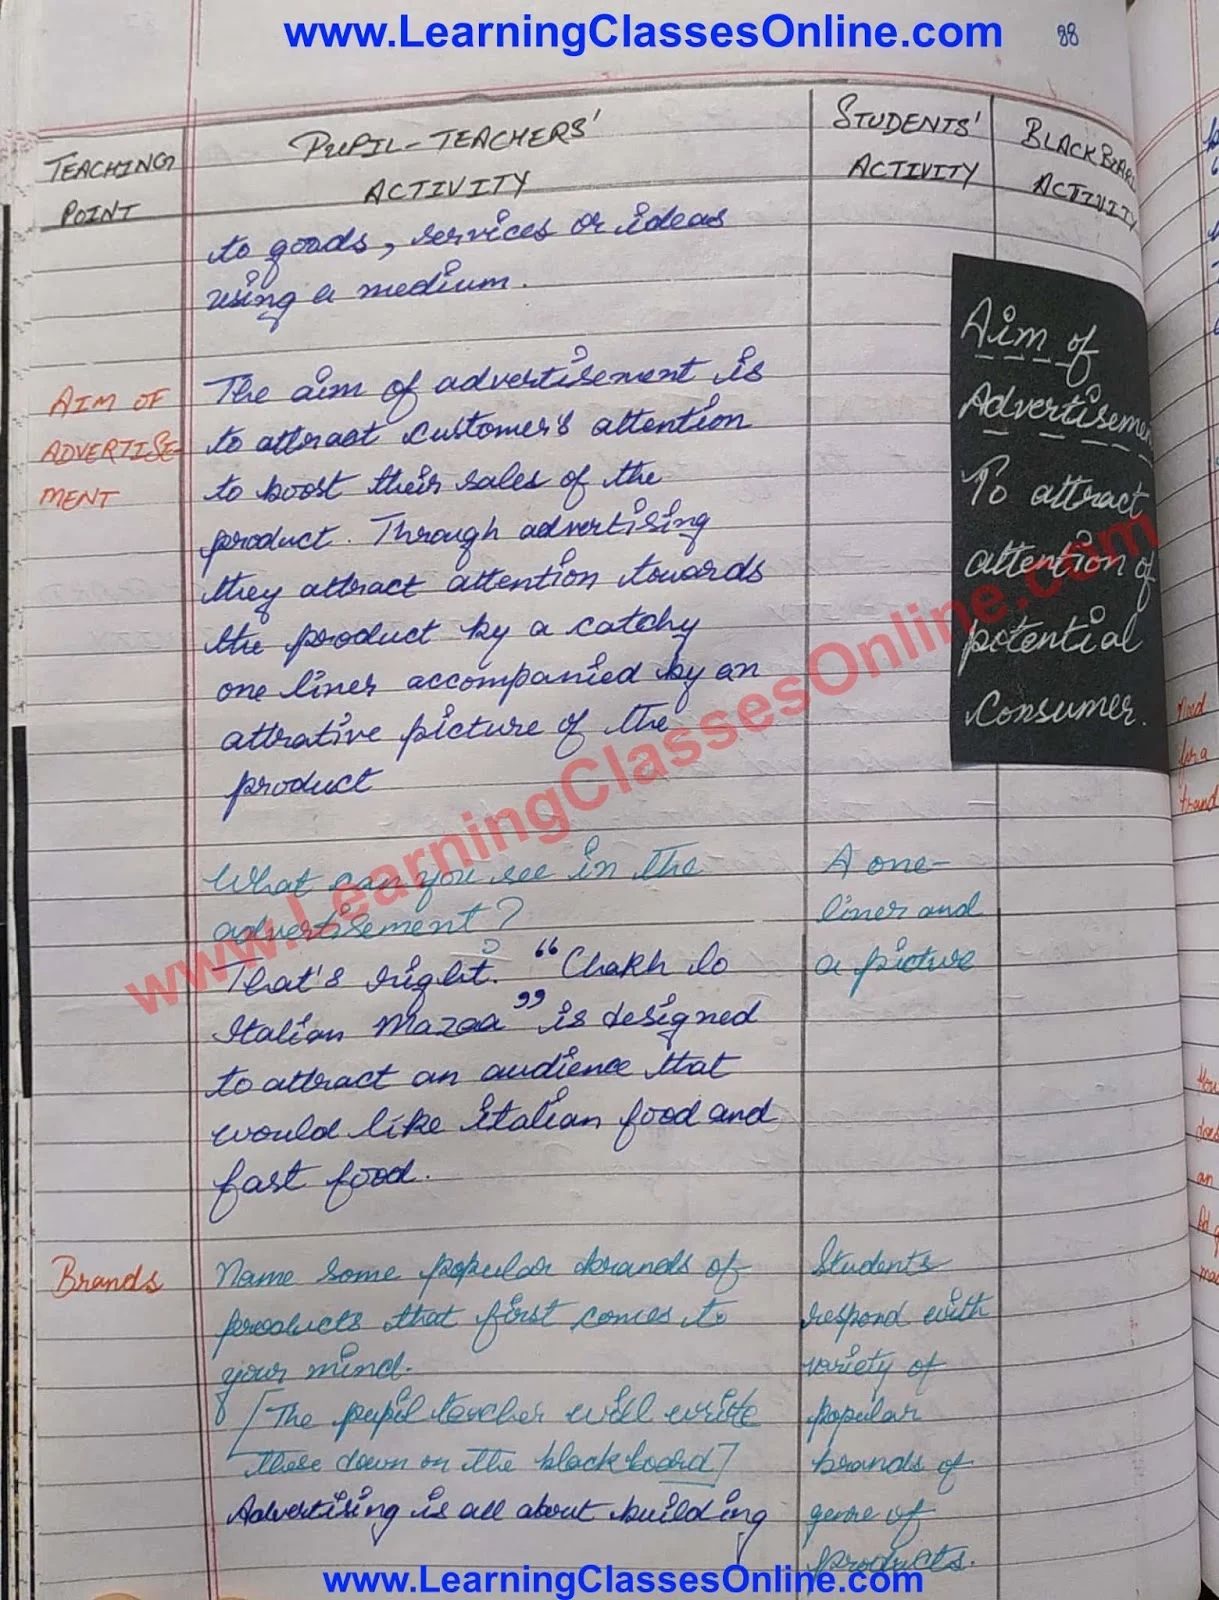 www.LearningClassesOnline.com
88
TEACHING
POINT
PUPIL-TEACHERS'
ACTIVITY
STUDENTS'
ACTIVITY
BLACKBOAR
ACTIVITY
to goods, services or ideas
using a medium.
AIM OF
ADVERTISE-
MENT
The aim of advertisement is
to attract customer's attention
to boost their sales of the
product. Through advertising
they attract attention towards
the product by a catchy
one liner accompanied by an
attrative picture of the
product
Aim of
Advertisemen
To attract
attention of
potential
consumer.
www.LearningClassesOnline.com
What can you see in the
advertisement?
A one-
liner and
a picture
That's right. "Chakh lo
Italian Mazaa" is designed
to attract an audience that
would like italian food and
fast food.
Brands
Name some popular brands of
products that first comes to
your mind.
[The pupil teacher will write
these down on the blackboard]
Advertising is all about building
Students
respond with
variety of
popular
brands of
genre of
products.
for a
an
www.LearningClassesOnline.com